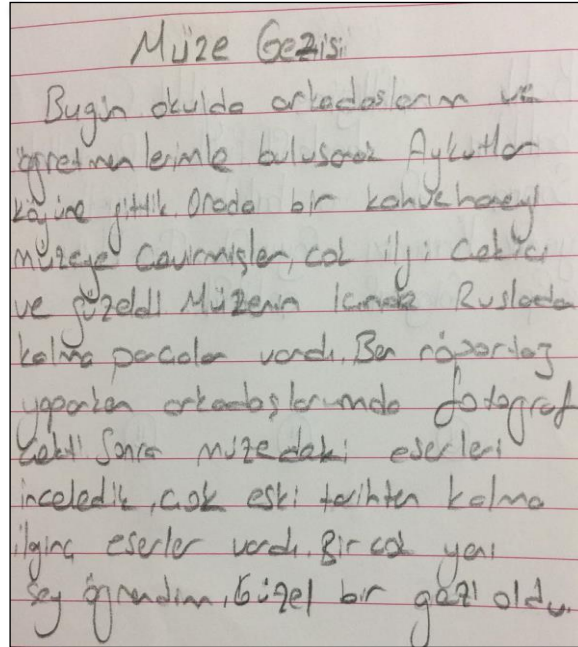 Müze Gezisi
Bugün okulda arkadaşlarım ve
öğretmenlerimle buluşarak Aykutlar
köyüne gittik. Orada bir kahvehaneyi
müzeye çevirmişler, çok ilgi çekici
ve güzeldi Müzenin içinde Ruslardan
kalma parçalar vardı. Ben röportaj
yaparken arkadaşlarımda fotoğraf
çekti Sonra müzedeki eserleri
inceledik, çok eski tarihten kalma
ilginç eserler vardı. Bir çok yeni
şey öğrendim, Güzel bir gezi oldu.